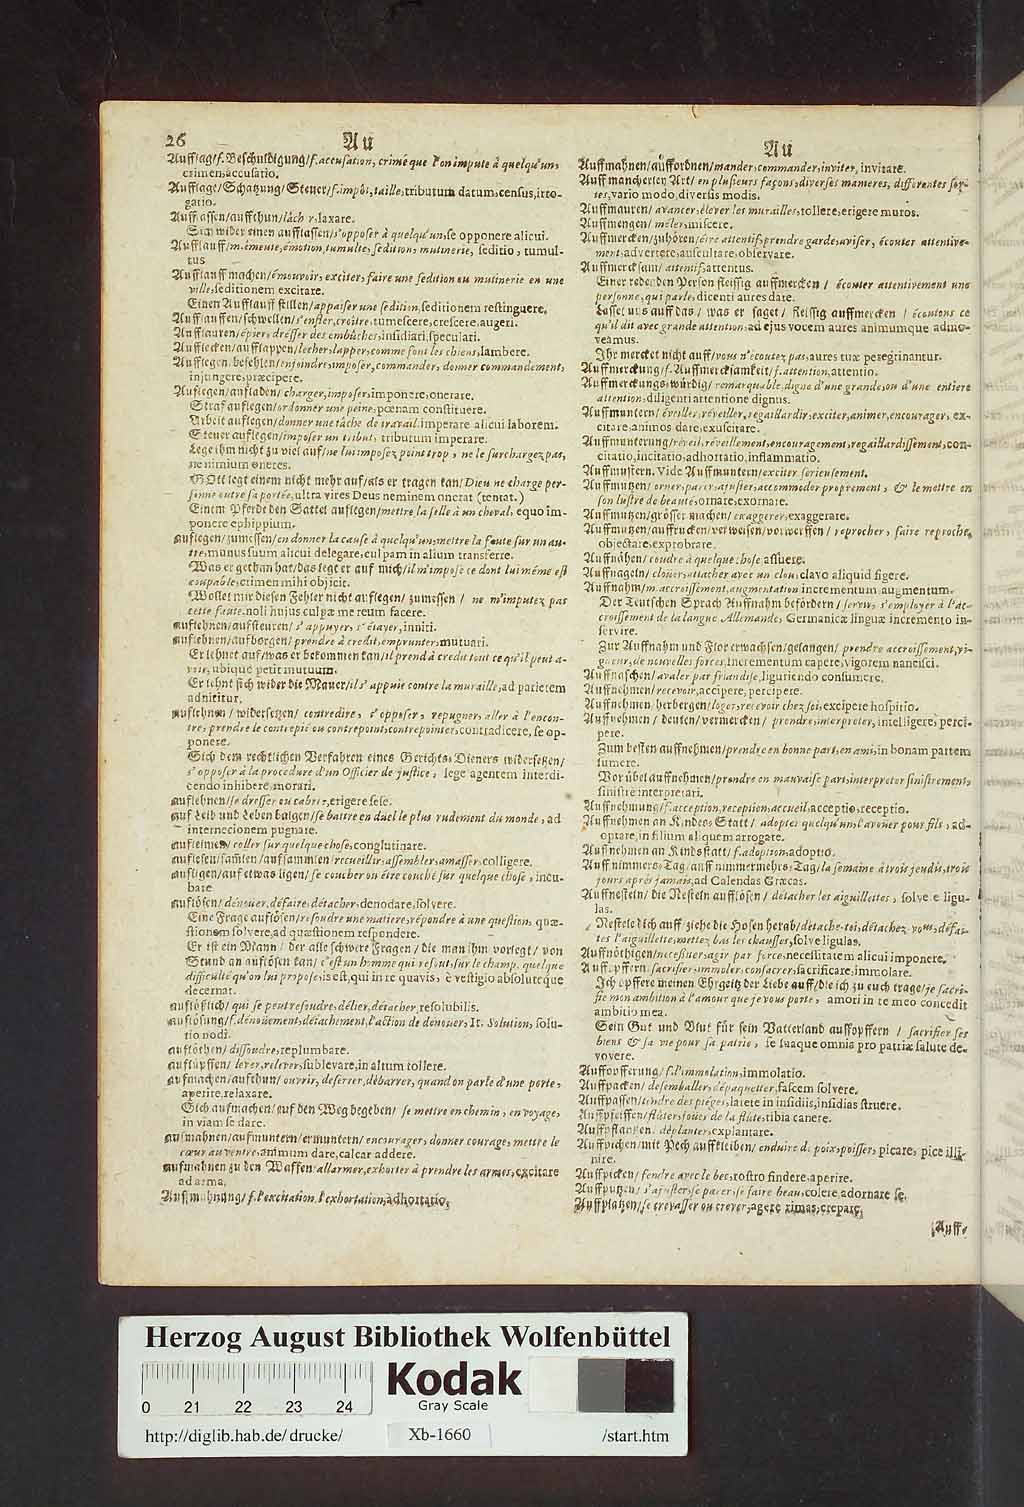 26 Au
Auffsag/f. Beschuldigung/f. accusation, crime que l'on impute à quelqu'un,
crimen, accusatio.
Aufflage/Schatzung/Steuer/f. impôt, taille, tributum datum, census, irro-
gatio.
Aufflassen/auffthun/lâcher, laxare.
Sich wider einen aufflassen/s'opposer à quelqu'un, se opponere alicui.
Aufflauff/m. émeute, émotion, tumulte, sedition, mutinerie, seditio, tumul-
tus
Aufflauff machen/émouvoir, exciter, faire une sedition ou mutinerie en une
ville, seditionem excitare.
Einen Aufflauff stillen/appaiser une sedition, seditionem restinguere.
Aufflauffen/schwellen/s'enfler, croître, tumescere, crescere, augeri.
Aufflauren/épier, dresser des embûches, insidiari, speculari.
Aufflecken/aufflappen/lecher, lapper, comme font les chiens, lambere.
Aufflegen, befehlen/enjoindre, imposer, commander, donner commandement,
injungere, præcipere.
Auflegen/aufladen/charger, imposer, imponere, onerare.
Straf auflegen/ordonner une peine, pœnam constituere.
Arbeit auflegen/donner une tâche de travail imperare alicui laborem.
Steuer auflegen/imposer un tribut, tributum imperare.
Lege ihm nicht zu viel auf/ne lui imposez point trop, ne le surchargez pas,
ne nimium oneres.
GOtt legt einem nicht mehr auf/als er tragen kan/Dieu ne charge per-
sonne outre sa portée, ultra vires Deus neminem onerat (tentat.)
Einem Pferde den Sattel auflegen/mettre la selle à un cheval, equo im-
ponere ephippium.
auflegen/zumessen/en donner la cause à quelqu'un, mettre la faute sur un au-
tre, munus suum alicui delegare, culpam in alium transferre.
Was er gethan hat/das legt er auf mich/il m'impose ce dont lui même est
coupable, crimen mihi objicit.
Wollet mir diesen Fehler nicht auflegen/zumessen/ne m'imputez pas
cette faute, noli hujus culpæ me reum facere.
auflehnen/aufsteuren/s'appuyer, s'étayer, inniti.
auflehnen/aufborgen/prendre à crédit, emprunter, mutuari.
Er lehnet auf/was er bekommen kan/il prend à credit tout ce qu'il peut a-
voir, ubique petit mutuum.
Er lehnt sich wider die Mauer/il s'appuie contre la muraille, ad parietem
adnititur.
auflehnen/widersetzen/contredire, s'opposer, repugner, aller à l'encon-
tre, prendre le contrepié ou contrepoint, contrepointer, contradicere, se op-
ponere.
Sich dem rechtlichen Verfahren eines Gerichts-Dieners widersetzen/
s'opposer à la procedure d'un Officier de justice, lege agentem interdi-
cendo inhibere, morari.
auflehnen/se dresser ou cabrer, erigere sese.
auf Leib und Leben balgen/se battre en duel le plus rudement du monde, ad
internecionem pugnare.
aufleimen/coller sur quelque chose, conglutinare.
auflesen/samlen/aufsammlen/recueillir, assembler, amasser, colligere.
aufligen/auf etwas ligen/se coucher ou être couché sur quelque chose, incu-
bare
auflösen/dénouer, défaire, détacher, denodare, solvere.
Eine Frage auflösen/resoudre une matiere, répondre à une question, quæ-
stionem solvere, ad quæstionem respondere.
Er ist ein Mann/der alle schwere Fragen/die man ihm vorlegt/von
Stund an auflösen kan/c'est un homme qui resout, sur le champ, quelque
difficulté qu'on lui propose, is est, qui in re quavis, è vestigio absoluteque
decernat.
auflößlich/qui se peut resoudre, délier, détacher, resolubilis.
auflösung/f. dénouëment, détachement, l'action de dénouer, It. Solution, solu-
tio nodi.
auflöthen/dissoudre, replumbare.
auflüpffen/lever, relever, sublevare, in altum tollere.
aufmachen/aufthun/ouvrir, deserrer, débarrer, quand on parle d'une porte,
aperire, relaxare.
Sich aufmachen/auf den Weg begeben/se mettre en chemin, en voyage,
in viam se dare.
aufmahnen/aufmuntern/ermuntern/encourager, donner courage, mettre le
cœur au ventre, animum dare, calcar addere.
aufmahnen zu den Waffen/allarmer, exhorter à prendre les armes, excitare
ad arma.
Auffmahnung/f. l'excitation, l'exhortation, adhortatio.
Au
Auffmahnen/auffordnen/mander, commander, inviter, invitare.
Auff mancherley Art/en plusieurs façons, diverses manieres, differentes sor-
tes, vario modo, diversis modis.
Auffmauren/avancer, élever les murailles, tollere, erigere muros.
Auffmengen/mêler, miscere.
Auffmercken/zuhören/être attentif, prendre garde, aviser, écouter attentive-
ment, advertere, auscultare, observare.
Auffmercksam/attentif, attentus.
Einer redenden Person fleissig auffmercken/écouter attentivement une
personne, qui parle, dicenti aures dare.
Lasset uns auff das/was er saget/fleissig auffmercken/écoutons ce
qu'il dit avec grande attention, ad ejus vocem aures animumque admo-
veamus.
Ihr mercket nicht auff/vous n'écoutez pas, aures tuæ peregrinantur.
Auffmerckung/f. Auffmercksamkeit/f. attention, attentio.
Auffmerckungs-würdig/remarquable, digne d'une grande, ou d'une entiere
attention, diligenti attentione dignus.
Auffmuntern/éveiller, réveiller, regaillardir, exciter, animer, encourager, ex-
citare, animos dare, exuscitare.
Auffmunterung/réveil, réveillement, encouragement, regaillardissement, con-
citatio, incitatio, adhortatio, inflammatio.
Auffmustern. Vide Auffmuntern/exciter serieusement.
Auffmutzen/orner, parer, ajuster, accommoder proprement, & le mettre en
son lustre de beauté, ornare, exornare.
Auffmutzen/grösser machen/exaggerer, exaggerare.
Auffmutzen/auffrucken/verweisen/vorwerffen/reprocher, faire reproche,
objectare, exprobrare.
Auffnähen/coudre à quelque chose, assuere.
Auffnageln/clouer, attacher avec un clou, clavo aliquid figere.
Auffnahm/m. accroissement, augmentation incrementum, augmentum.
Der Teutschen Sprach Auffnahm befördern/servir, s'employer à l'ac-
croissement de la langue Allemande, Germanicæ linguæ incremento in-
servire.
Zur Auffnahm und Flor erwachsen/gelangen/prendre accroissement, vi-
gueur, de nouvelles forces, Incrementum capere, vigorem nancisci.
Auffnaschen/avaler par friandise, liguriendo consumere.
Auffnehmen/recevoir, accipere, percipere.
Auffnehmen/herbergen/loger, recevoir chez soi, excipere hospitio.
Auffnehmen/deuten/vermercken/prendre, interpreter, intelligere, perci-
pere.
Zum besten auffnehmen/prendre en bonne part, en ami, in bonam partem
sumere.
Vor übel auffnehmen/prendre en mauvaise part, interpretor sinistrement,
sinistre interpretari.
Auffnehmung/f. acception, reception, accueil, acceptio, receptio.
Auffnehmen an Kindes Statt/adopter quelqu'un, l'avouer pour fils, ad-
optare, in filium aliquem arrogare.
Auffnehmen an Kindsstatt/f. adoption, adoptio.
Auff nimmers-Tag/auff nimmermehrs-Tag/la semaine à trois jeudis, trois
jours après jamais, ad Calendas Græcas.
Auffnesteln/die Nesteln aufflösen/détacher les aiguillettes, solvere ligu-
las.
Nestele dich auff, ziehe die Hosen herab/détache-toi, détachez-vous, défai-
tes l'aiguillette, mettez bas les chausses, solve ligulas.
Auffnöthigen/necessiter, agir par force, necessitatem alicui imponere.
Auffopffern/sacrifier, immoler, consacrer, sacrificare, immolare.
Ich opffere meinen Ehrgeitz der Liebe auff/die ich zu euch trage/je sacri-
fie mon ambition à l'amour que je vous porte, amori in te meo concedit
ambitio mea.
Sein Gut und Blut für sein Vatterland auffopffern/sacrifier ses
biens & sa vie pour sa patrie, se suaque omnia pro patriæ salute de-
vovere.
Auffopfferung/f. l'immolation, immolatio.
Auffpacken/desemballer, dépaquetter, fascem solvere.
Auffpassen/tendre des pieges, latere in insidiis, insidias struere.
Auffpfeiffen/flûter, jouer de la flûte, tibia canere.
Auffpflantzen/déplanter, explantare.
Auffpichen/mit Pech auffkleiben/enduire de poix, poisser, picare, pice illi-
nire.
Auffpicken/fendre avec le bec, rostro findere, aperire.
Auffputzen/s'ajuster, se parer, se faire beau, colere, adornare se.
Auffplatzen/se crevasser ou crever, agere rimas, crepare.
Auff-
Herzog August Bibliothek Wolfenbüttel
Kodak
Gray Scale
0 21 22 23 24
http://diglib.hab.de/drucke/ Xb-1660 /start.htm